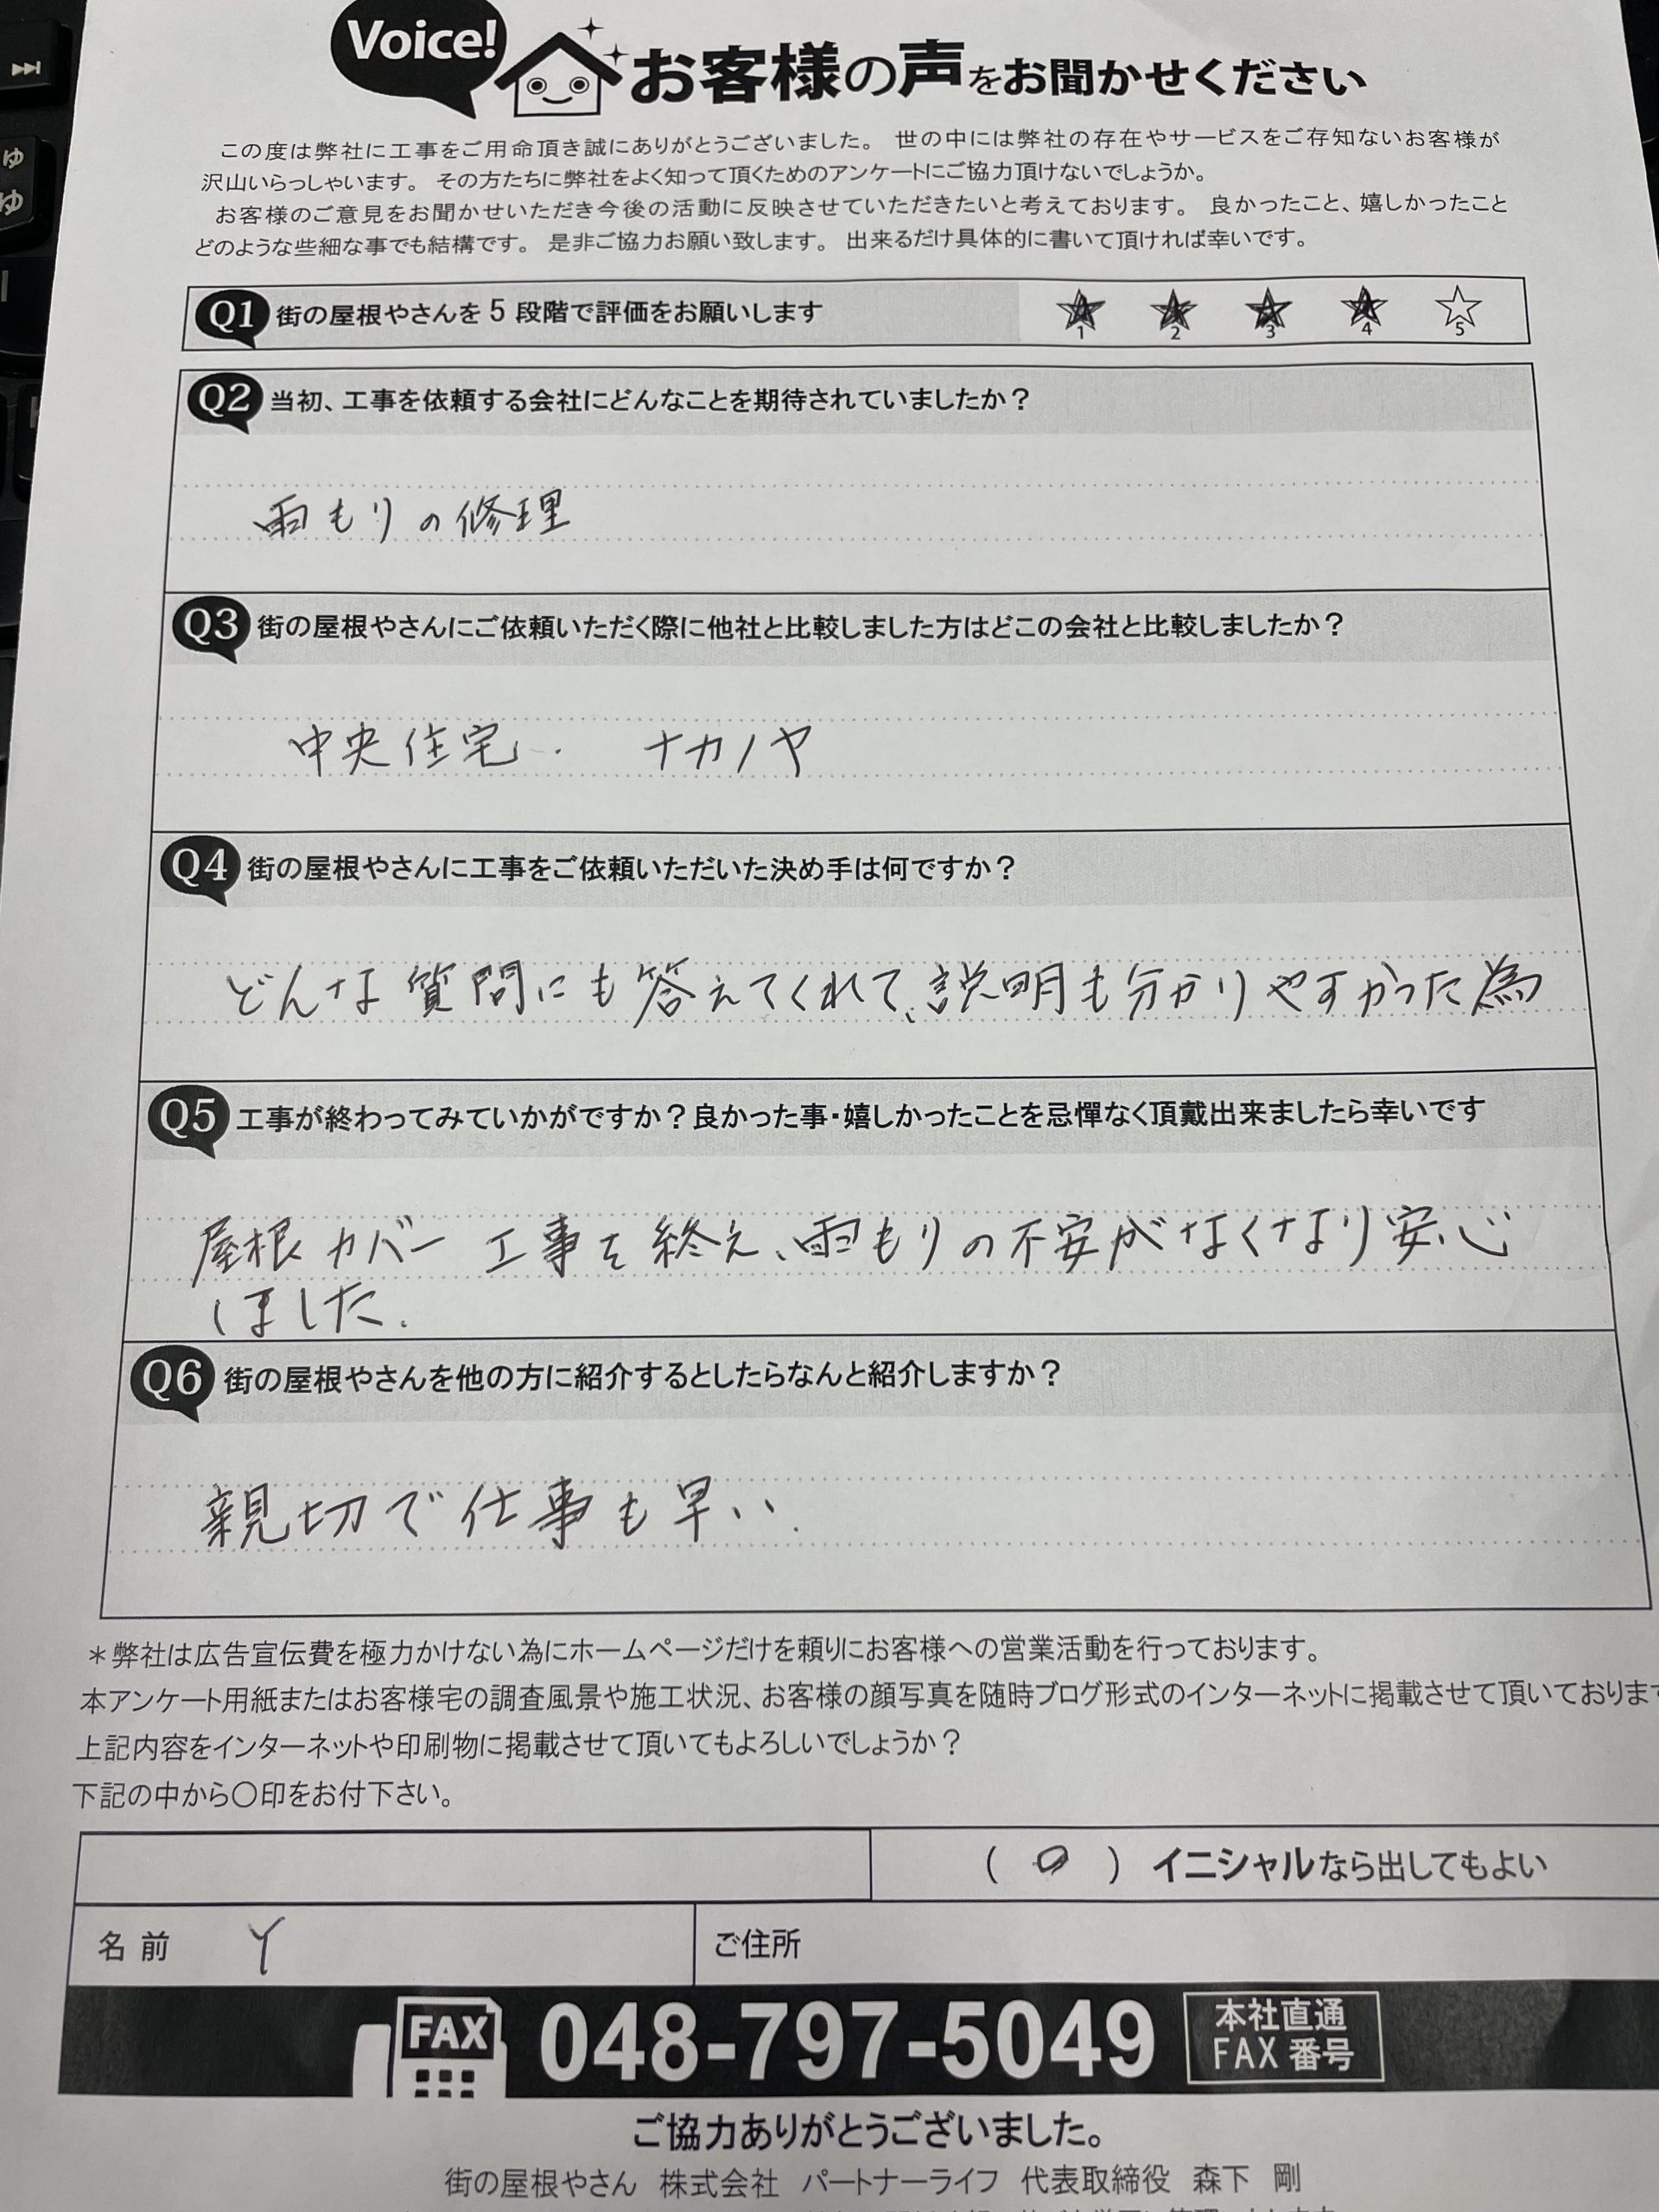 Voice!
お客様の声をお聞かせください
この度は弊社に工事をご用命頂き誠にありがとうございました。 世の中には弊社の存在やサービスをご存知ないお客様が
沢山いらっしゃいます。 その方たちに弊社をよく知って頂くためのアンケートにご協力頂けないでしょうか。
お客様のご意見をお聞かせいただき今後の活動に反映させていただきたいと考えております。 良かったこと、嬉しかったこと
どのような些細な事でも結構です。 是非ご協力お願い致します。 出来るだけ具体的に書いて頂ければ幸いです。
Q1 街の屋根やさんを5段階で評価をお願いします ★ ★ ★ ★ ☆
1 2 3 4 5
Q2 当初、工事を依頼する会社にどんなことを期待されていましたか？
雨もりの修理
Q3 街の屋根やさんにご依頼いただく際に他社と比較しました方はどこの会社と比較しましたか？
中央住宅. ナカノヤ
Q4 街の屋根やさんに工事をご依頼いただいた決め手は何ですか？
どんな質問にも答えてくれて、説明も分かりやすかった為
Q5 工事が終わってみていかがですか？良かった事・嬉しかったことを忌憚なく頂戴出来ましたら幸いです
屋根カバー工事を終え、雨もりの不安がなくなり安心
しました.
Q6 街の屋根やさんを他の方に紹介するとしたらなんと紹介しますか？
親切で仕事も早い.
＊弊社は広告宣伝費を極力かけない為にホームページだけを頼りにお客様への営業活動を行っております。
本アンケート用紙またはお客様宅の調査風景や施工状況、お客様の顔写真を随時ブログ形式のインターネットに掲載させて頂いております
上記内容をインターネットや印刷物に掲載させて頂いてもよろしいでしょうか？
下記の中から〇印をお付下さい。
（ 〇 ） イニシャルなら出してもよい
名前 Y ご住所
FAX 048-797-5049 本社直通
FAX番号
ご協力ありがとうございました。
街の屋根やさん 株式会社 パートナーライフ 代表取締役 森下 剛